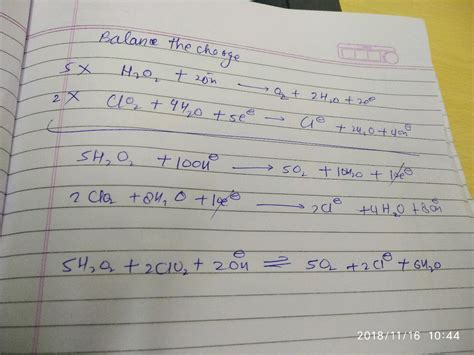 Balance the charge
5 X H₂O₂ + 2OH → O₂ + 2H₂O + 2e⊖
2 X ClO₂ + 4H₂O + 5e⊖ → Cl⊖ + 2H₂O + 4OH⊖
5H₂O₂ + 10OH⊖ → 5O₂ + 10H₂O + 10e⊖
2 ClO₂ + 8H₂O + 10e⊖ → 2Cl⊖ + 4H₂O + 8OH⊖
5H₂O₂ + 2ClO₂ + 2OH⊖ ⇌ 5O₂ + 2Cl⊖ + 6H₂O
2018/11/16 10:44